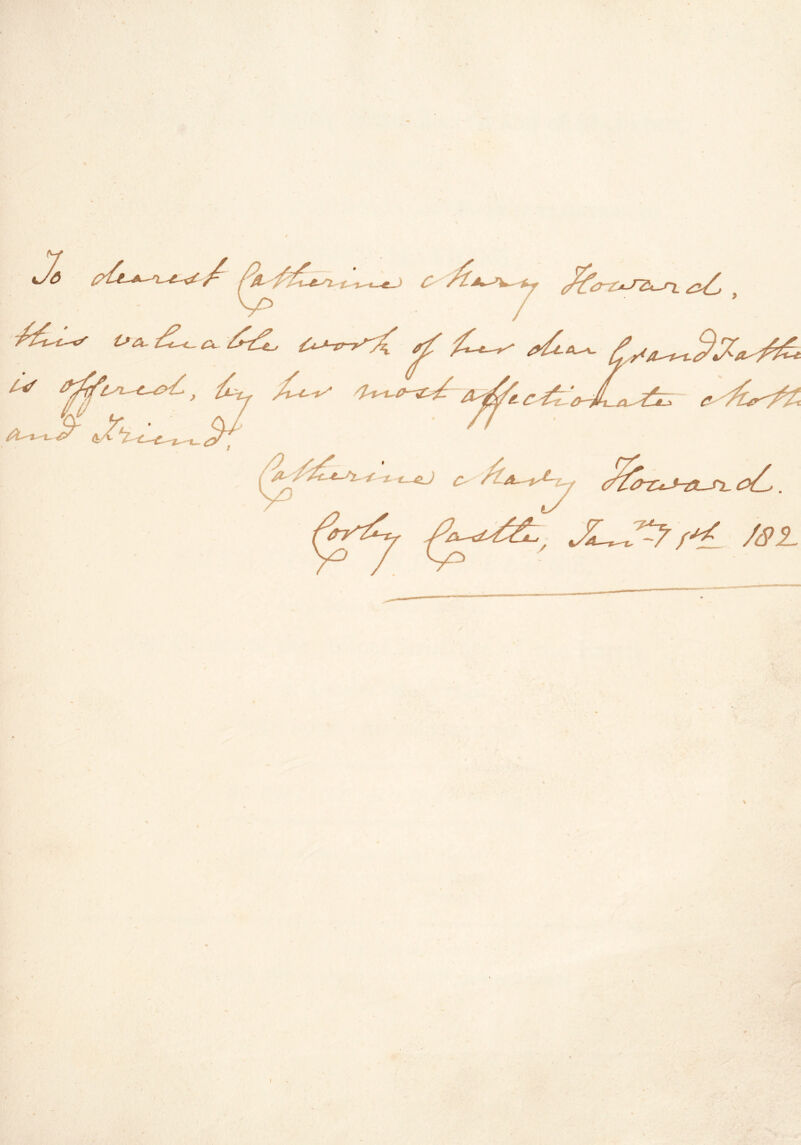 To dearest Catherine Mary Howard,
this valuable work of her dear GrandFathe
is offered, by her most affectionate Moth
and Friend,
Catherine Mary Howard.
Corby Castle, Jan.ry 7th 182